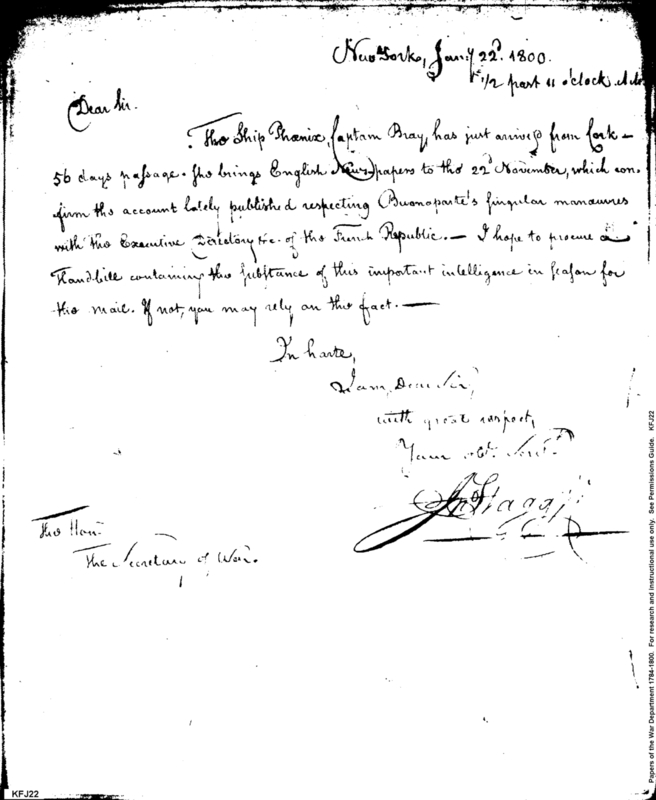 New York, Jany 22d. 1800.
1/2 past 11 o'clock A.M.
Dear Sir.
The Ship Phœnix, Captam Bray, has just arrived from Cork —
56 days passage. She brings English News papers to the 22d November, which con-
firm the account lately published respecting Buonaparte's singular manœuvres
with the Executive Directory &c. of the French Republic. — I hope to procure a
Handbill containing the substance of this important intelligence in season for
this mail. If not, you may rely on the fact. —
In haste,
I am, Dear Sir,
with great respect,
Your obt. Servt.
Jno Stagg Jr
The Honl.
The Secretary of War.
KFJ22
Papers of the War Department 1784-1800. For research and instructional use only. See Permissions Guide. KFJ22